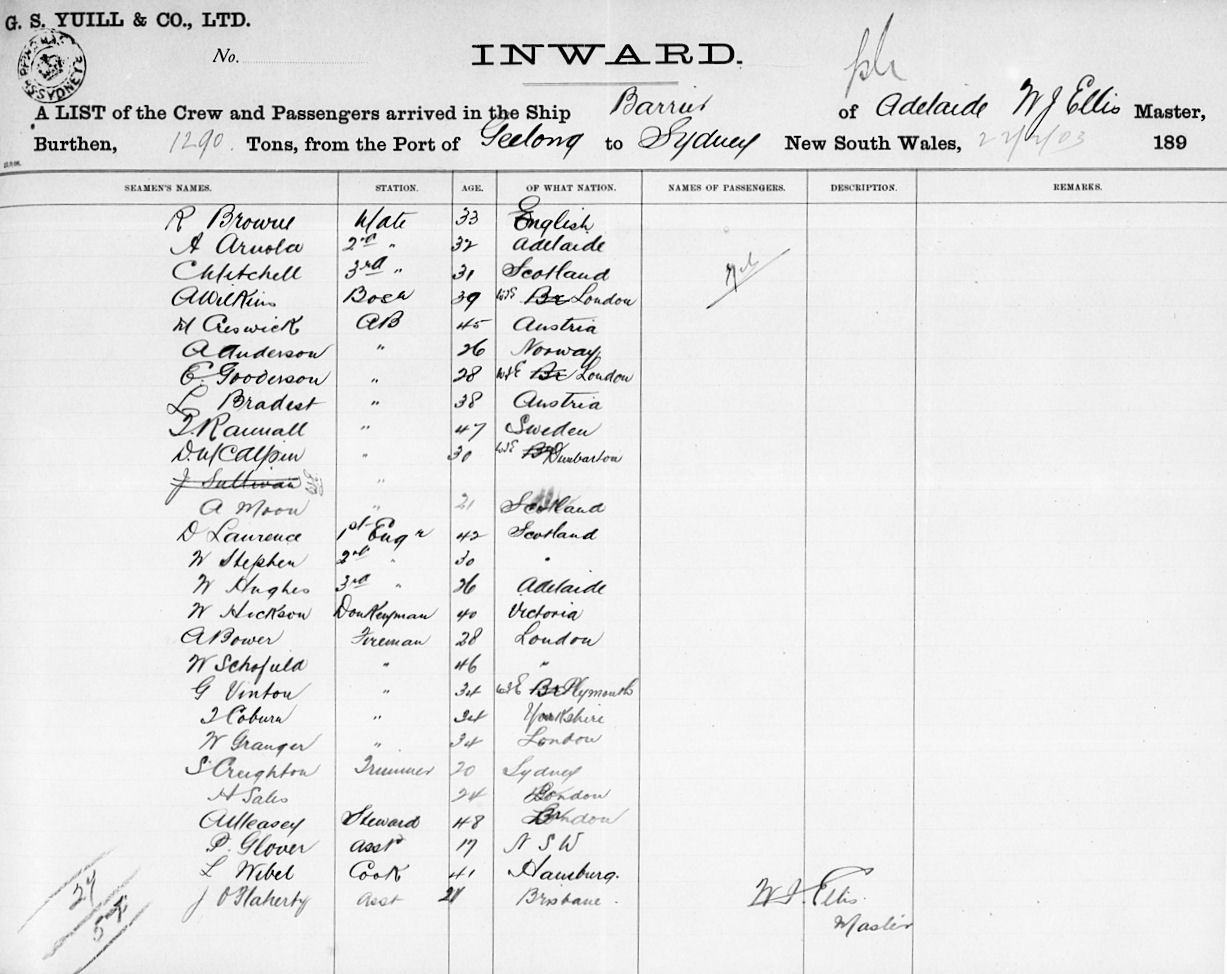 G. S. YUILL & CO., LTD.
No.
INWARD.
A LIST of the Crew and Passengers arrived in the Ship Barrier of Adelaide W J Ellis Master,
Burthen, 1290 Tons, from the Port of Geelong to Sydney New South Wales, 22/2/03 189
SEAMEN'S NAMES. STATION. AGE. OF WHAT NATION. NAMES OF PASSENGERS. DESCRIPTION. REMARKS.
R Browne Mate 33 English
A Arnold 2nd " 32 Adelaide
C Mitchell 3rd " 31 Scotland
A Wilkins Bosn 39 WJE Br London
M Creswick AB 45 Austria
A Anderson " 26 Norway
E. Gooderson " 28 WJE Br London
L Bradest " 38 Austria
T Rannall " 47 Sweden
D. McCalpin " 30 WJE Br Dunbarton
J Sullivan WJE "
A Moon " 21 Scotland
D Laurence 1st Engr 42 Scotland
W Stephen 2nd " 30 "
W Hughes 3rd " 26 Adelaide
W Hickson Donkeyman 40 Victoria
A Bower Fireman 28 London
W Schofield " 46 "
G Vinton " 34 WJE Br Plymouth
J Coburn " 34 Yorkshire
W Granger " 34 London
S Creighton Trimmer 20 Sydney
H Sales 24 London
A Measey Steward 48 London
P. Glover asst 17 N S W
L Wibel Cook 41 Hamburg.
J O'Flaherty asst 21 Brisbane.
27
W. J. Ellis
Master